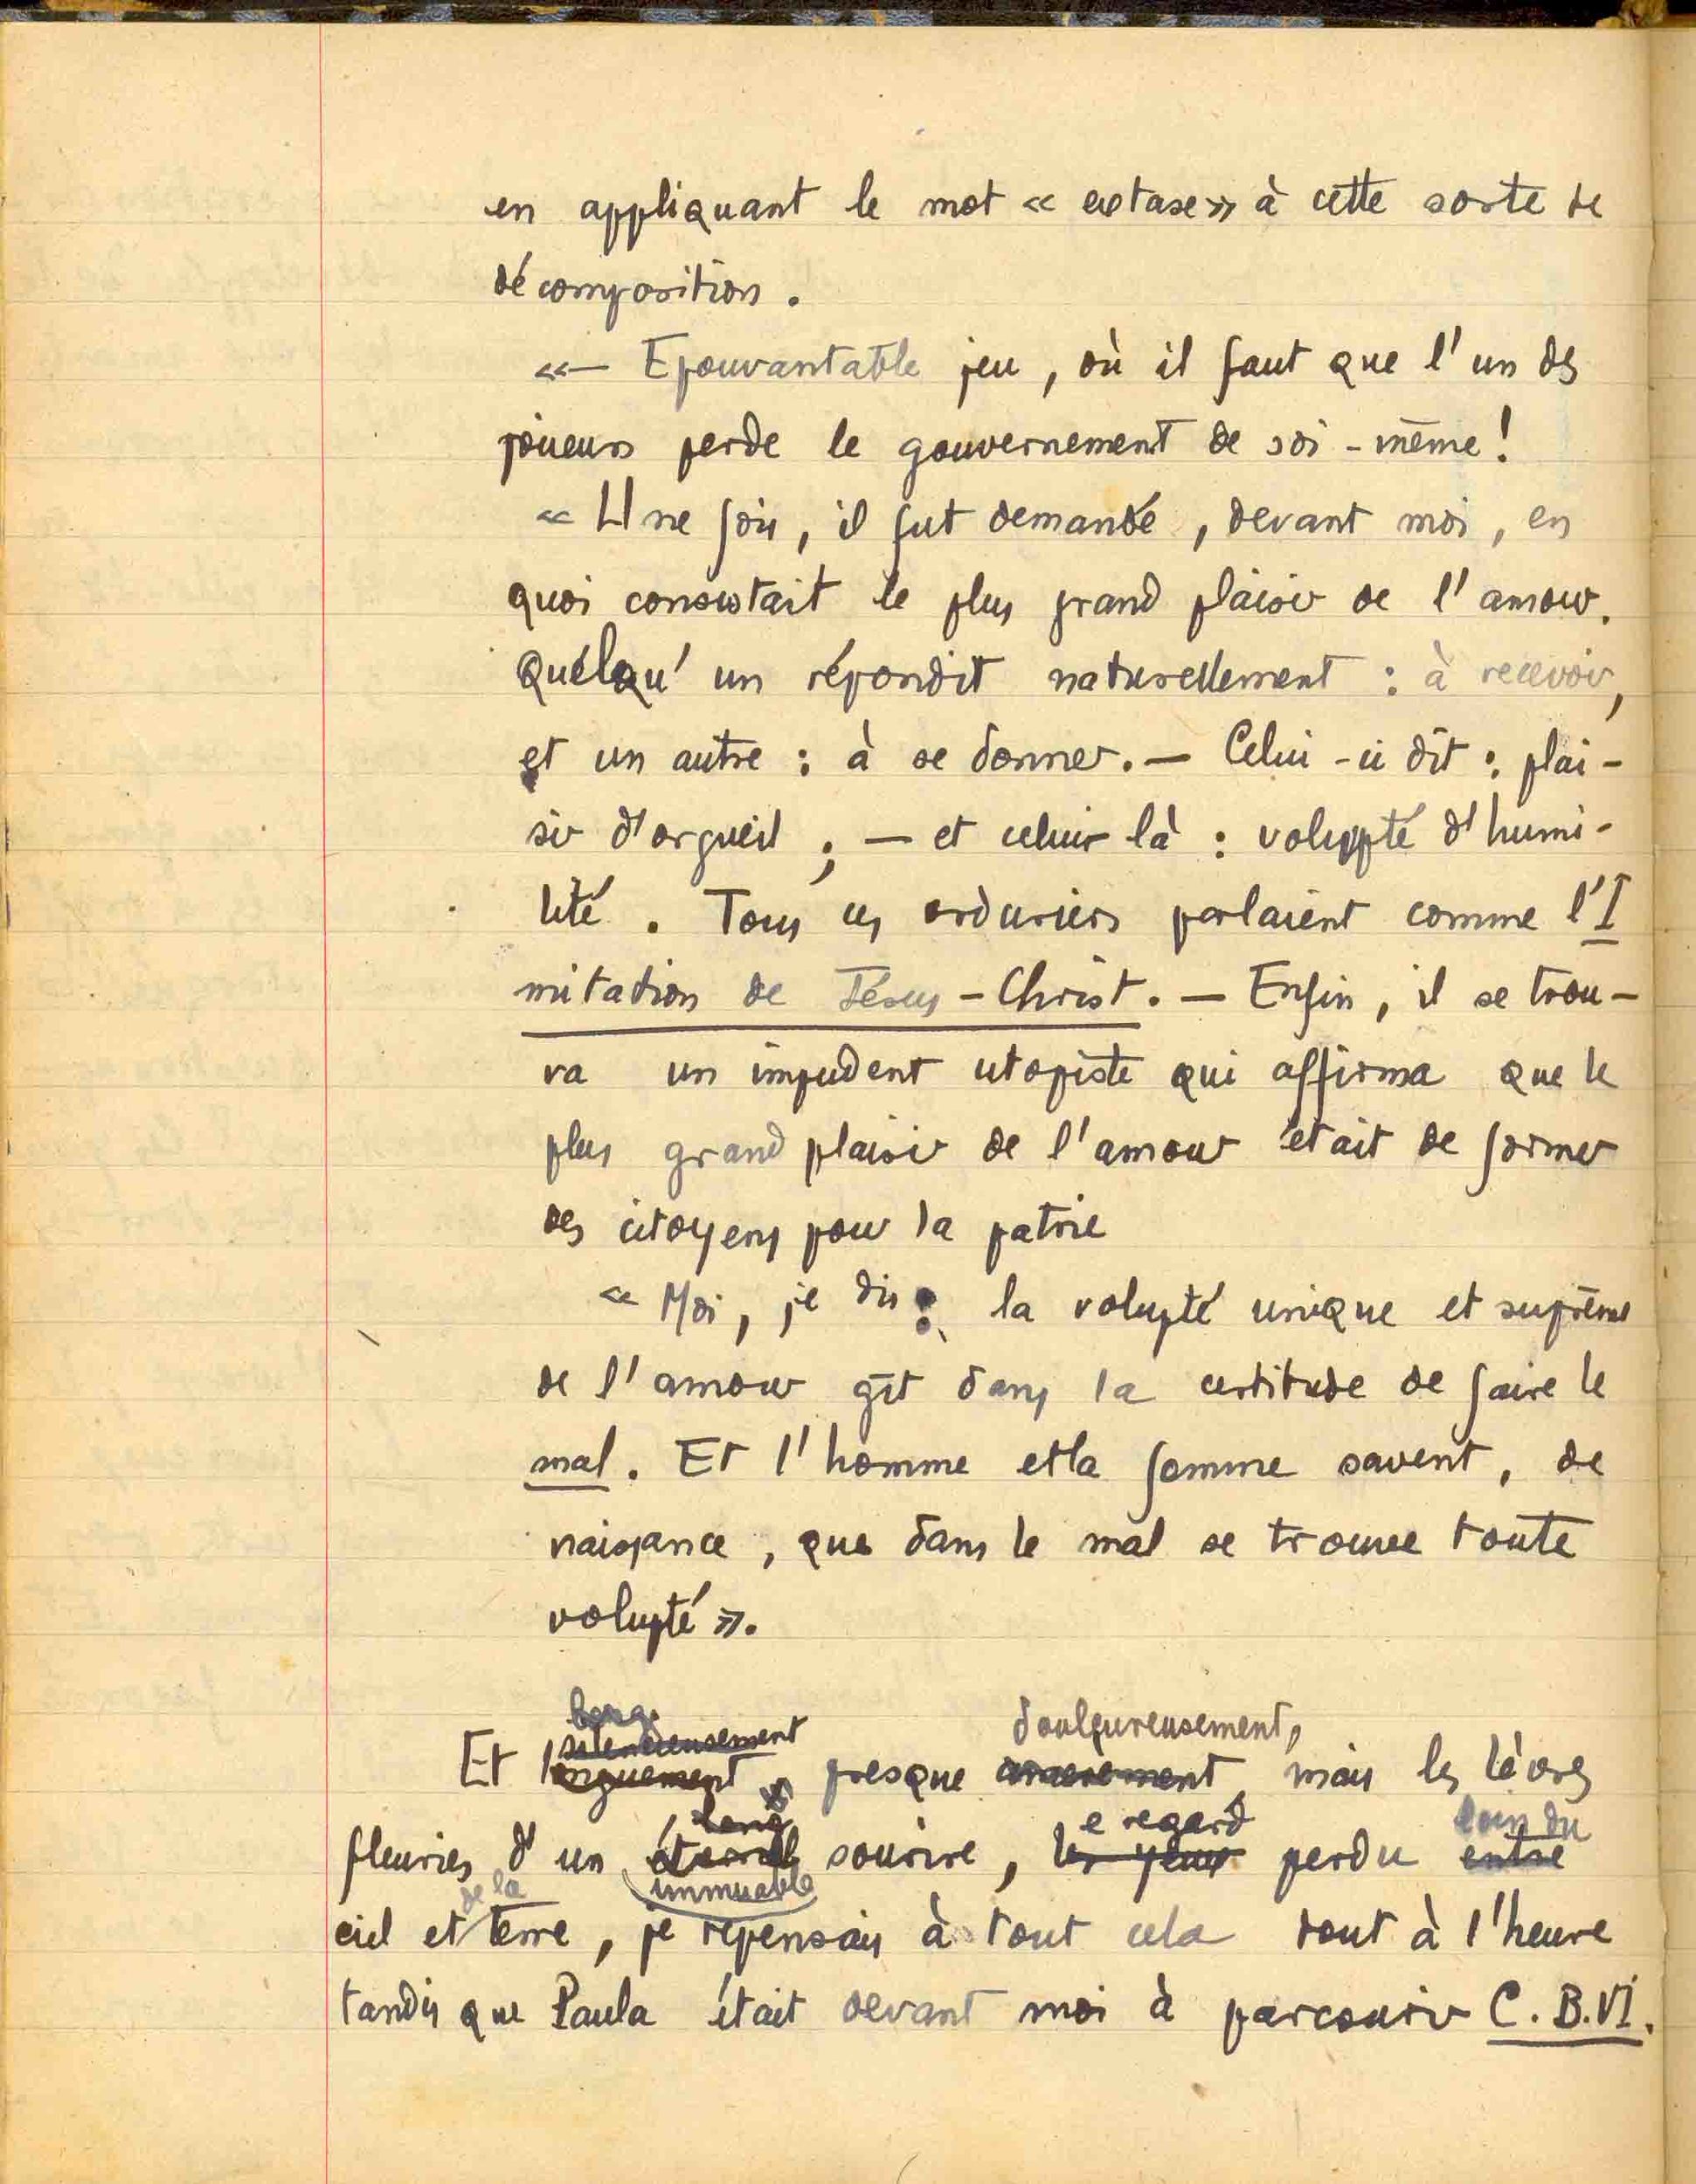 en appliquant le mot « extase » à cette sorte de
décomposition.
«— Epouvantable jeu, où il faut que l'un des
joueurs perde le gouvernement de soi-même!
« Une fois, il fut demandé, devant moi, en
quoi consistait le plus grand plaisir de l'amour.
Quelqu'un répondit naturellement : à recevoir,
et un autre : à se donner. — Celui-ci dit : plai-
sir d'orgueil ; — et celui-là : volupté d'humi-
lité. Tous ces orduriers parlaient comme l'I
mitation de Jésus-Christ. — Enfin, il se trou-
va un impudent utopiste qui affirma que le
plus grand plaisir de l'amour était de former
des citoyens pour la patrie
« Moi, je dis : la volupté unique et suprême
de l'amour gît dans la certitude de faire le
mal. Et l'homme et la femme savent, de
naissance, que dans le mal se trouve toute
volupté ».
douloureusement,
silencieusement
Et longuement, presque amèrement, mais les lèvres
long e regard loin du
fleuries d'un éternel sourire, les yeux perdu entre
de la immuable
ciel et terre, je repensais à tout cela tout à l'heure
tandis que Paula était devant moi à parcourir C. B. VI.